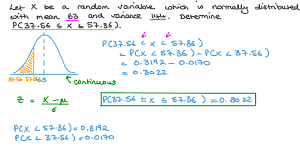 Let X be a random variable which is normally distributed
with mean 63 and variance 144. Determine
P(37.56 ≤ X ≤ 57.36).
P(37.56 ≤ X ≤ 57.36)
= P(X < 57.36) - P(X < 37.56)
= 0.3192 - 0.0170
= 0.3022
37.56 57.36 63
continuous
Z = X - μ
σ
P(37.56 ≤ X ≤ 57.36) = 0.3022
P(X < 57.36) = 0.3192
P(X < 37.56) = 0.0170